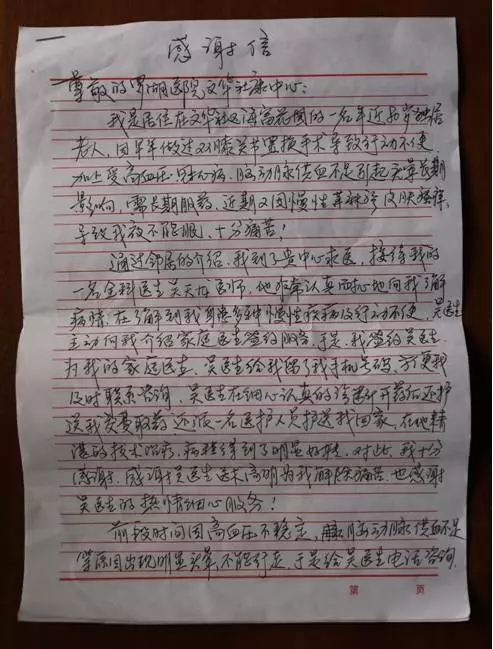 感谢信
尊敬的罗湖医院文华社康中心：
我是居住在文华社区海富花园的一名年近80岁独居
老人，因早年做过双膝关节置换手术导致行动不便，
加上受高血压、冠心病、脑动脉供血不足引起头晕长期
影响，需长期服药，近期又因慢性荨麻疹皮肤瘙痒，
导致我夜不能眠，十分痛苦！
通过邻居的介绍，我到了贵中心求医，接待我的
一名全科医生吴天龙医师，他非常认真耐心地向我了解
病情，在了解到我身患多种慢性疾病及行动不便，吴医生
主动向我介绍家庭医生签约服务，于是，我签约吴医生
为我的家庭医生，吴医生给我留了手机号码，方便我
及时联系咨询，吴医生在细心认真的诊断开药后还护
送我交费取药，还派一名医护人员护送我回家，在他精
湛的技术治疗，病情得到了明显好转，对此，我十分
感谢，感谢吴医生医术高明为我解除痛苦，也感谢
吴医生的热情细心服务！
前段时间因高血压不稳定，脑动脉供血不足
等原因出现明显头晕，不能行走，于是给吴医生电话咨询，
第 页